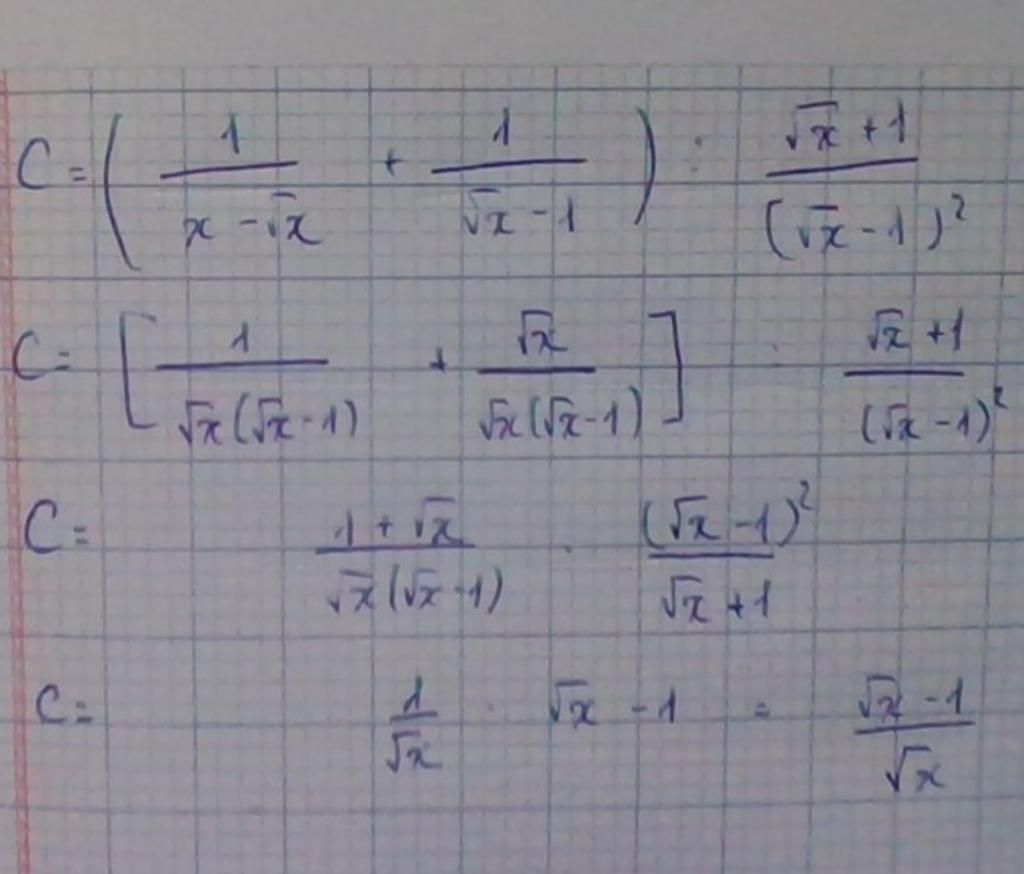 C = ( 1/(x - √x) + 1/(√x - 1) ) : (√x + 1)/(√x - 1)²
C = [ 1/(√x(√x - 1)) + √x/(√x(√x - 1)) ] : (√x + 1)/(√x - 1)²
C = (1 + √x)/(√x(√x - 1)) . (√x - 1)²/(√x + 1)
C = 1/√x . √x - 1 = (√x - 1)/√x